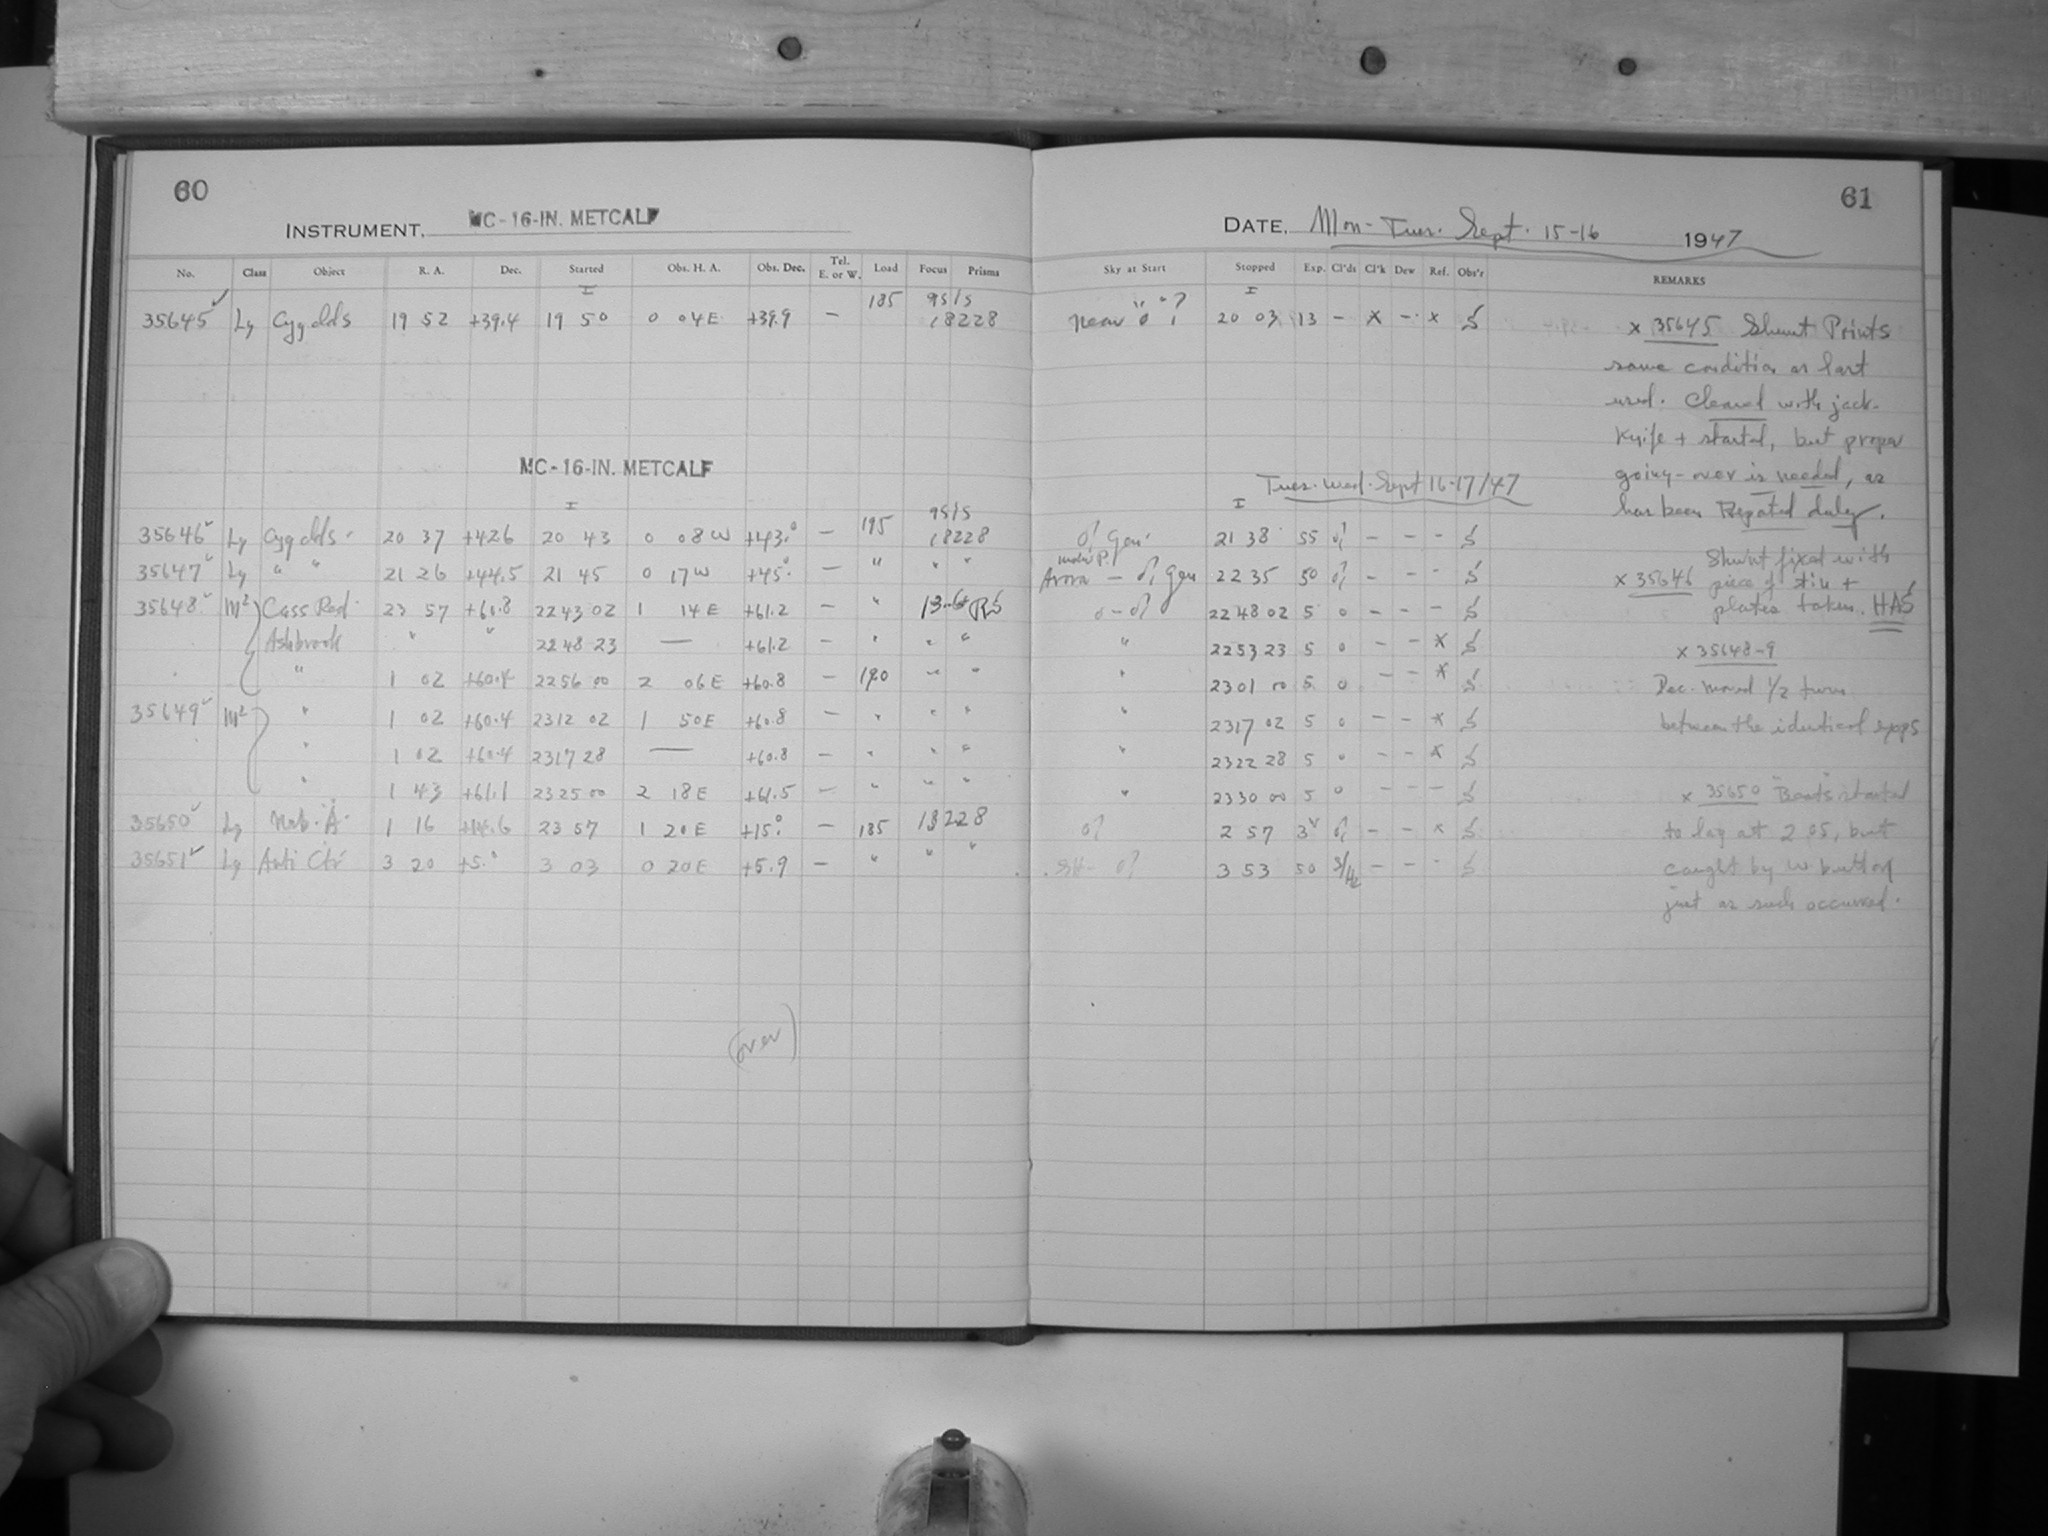 60
INSTRUMENT, MC-16-IN. METCALF
No. Class Object R. A. Dec. Started Obs. H. A. Obs. Dec. Tel. E. or W. Load Focus Prisms
I 185 9515
35645 Ly Cyg clds 19 52 +39.4 19 50 0 04E +39.9 — 18228
MC-16-IN. METCALF
I 9515
35646 Ly Cyg clds 20 37 +42.6 20 43 0 08W +43.0 — 195 18228
35647 Ly " " 21 26 +44.5 21 45 0 17W +45.0 — " " "
35648 M2 Cass Red 23 57 +61.8 22 43 02 1 14E +61.2 — " 13.6 RS
Ashbrook " " 22 48 23 — +61.2 — " " "
" 1 02 +60.4 22 56 00 2 06E +60.8 — 190 " "
35649 M2 " 1 02 +60.4 23 12 02 1 50E +60.8 — " " "
" 1 02 +60.4 23 17 28 — +60.8 — " " "
" 1 43 +61.1 23 25 00 2 18E +61.5 — " " "
35650 Ly Neb. A. 1 16 +14.6 23 57 1 20E +15.0 — 185 18228
35651 Ly Anti Ctr 3 20 +5.0 3 03 0 20E +5.9 — " " "
(over)
61
DATE, Mon-Tues. Sept. 15-16 1947
Sky at Start Stopped Exp. Cl'ds Cl'k Dew Ref. Obs'r REMARKS
I
near 0 ? 20 03 13 — x — x S
x 35645 Shunt Points
same condition as last
used. Cleaned with jack-
knife + started, but proper
going-over is needed, as
has been Repeated duly.
Tues. Wed. Sept 16-17/47
I
Gen. 21 38 55 — — - S
under P.
Arora — Gen 22 35 50 — — - S
22 48 02 5 0 — — — S
" 22 53 23 5 0 — — x S
" 23 01 00 5 0 — — x S
" 23 17 02 5 0 — — x S
" 23 22 28 5 0 — — x S
" 23 30 00 5 0 — — — S
2 57 — — x S
3 53 50 — — - S
Shunt fixed with
x 35646 piece of tin +
plates taken. HAS
x 35648-9
Dec. moved 1/2 turn
between the identical exps
x 35650 "Beats" started
to lag at 2 05, but
caught by W button
just as such occurred.